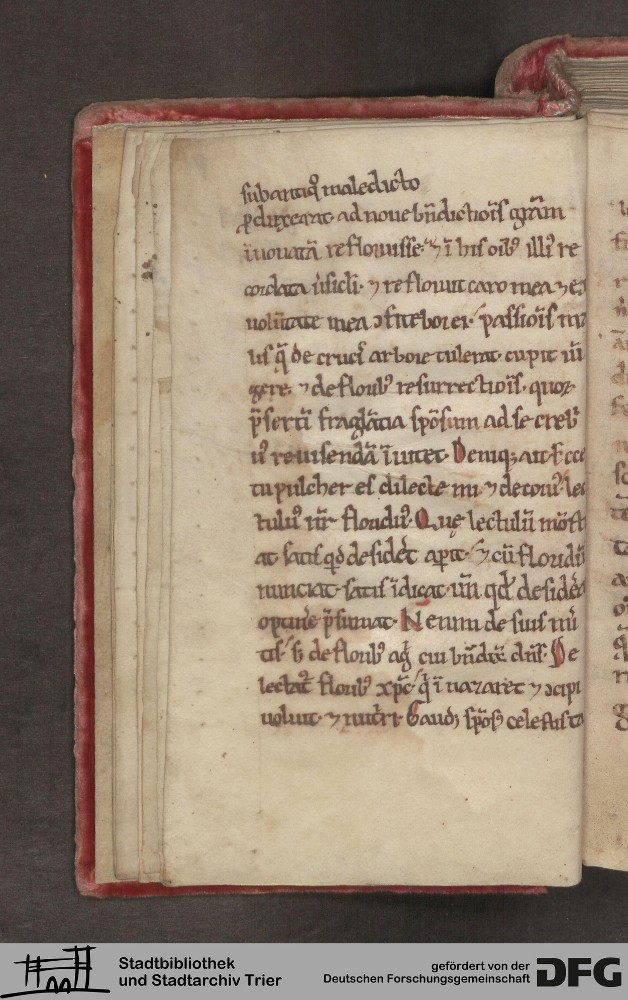 sub antiq maledicto
ꝓduxerat· ad noue bn̄dictiōis grām
īnouatā refloruisse· ⁊ ī his oīb; illi re
cordata ūsicli· ⁊ refloruit caro mea ⁊ ex
volūtate mea ↄfitebor ei· passiōis
us q̄ de cruc arbore tulerat· cupit iū
gere· ⁊ de florib; resurrectiōis· quoꝝ
p̄sertī fraglātia spōsum ad se crebr
us reuisendā īuitet· Deniq; ait· Ecce
tu pulcher es dilecte mi· ⁊ decorus· lec
tulus nr̄ floridus· Que lectulū mōst
at· satis qd desidet apit· ⁊ cū floridū
nunciat· satis īdicat· un̄ qd desidat
optinere p̄sumat· Nenim de suis mi
tis· s; de florib; agi cui bn̄dix dn̄s· De
lectat florib; xp̄c· q ī nazaret ⁊ ↄcipi
uoluit· ⁊ nutri· Gaud; spōs celestis ta
Stadtbibliothek
und Stadtarchiv Trier
gefördert von der
Deutschen Forschungsgemeinschaft
DFG